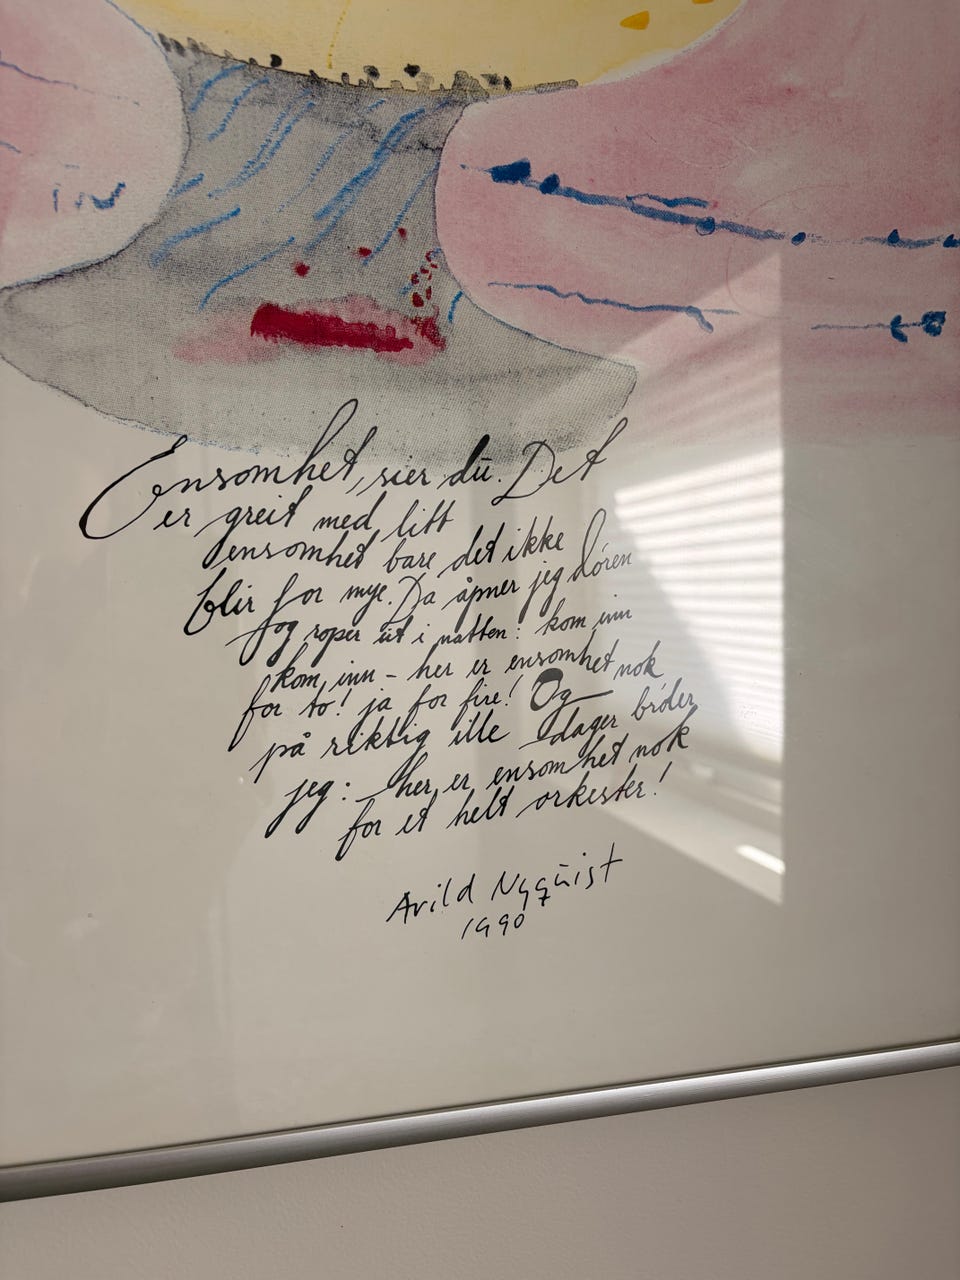 Ensomhet, sier du. Det
er greit med litt
ensomhet bare det ikke
blir for mye. Da åpner jeg døren
og roper ut i natten: kom inn
kom inn - her er ensomhet nok
for to! ja for fire! Og
på riktig ille dager brøler
jeg: - her er ensomhet nok
for et helt orkester!
Arild Nyquist
1990